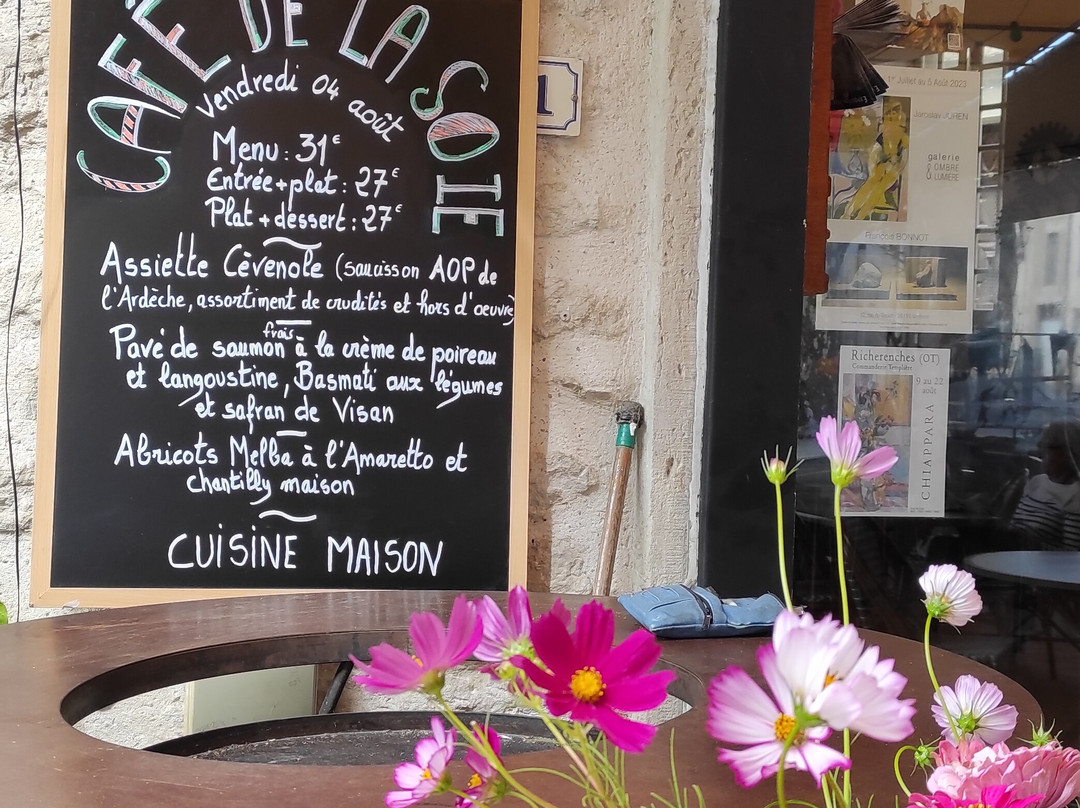 CAFÉ DE LA SOIE
Vendredi 04 août
Menu : 31€
Entrée + plat : 27€
Plat + dessert : 27€
Assiette Cévenole (saucisson AOP de
l'Ardèche, assortiment de crudités et hors d'oeuvre
frais
Pavé de saumon à la crème de poireau
et langoustine, Basmati aux légumes
et safran de Visan
Abricots Melba à l'Amaretto et
chantilly maison
CUISINE MAISON
1
1er Juillet au 5 Août 2023
galerie
OMBRE
LUMIÈRE
François BONNOT
Richerenches (OT)
Commanderie Templière
9 au 22
août
CHIAPPARA